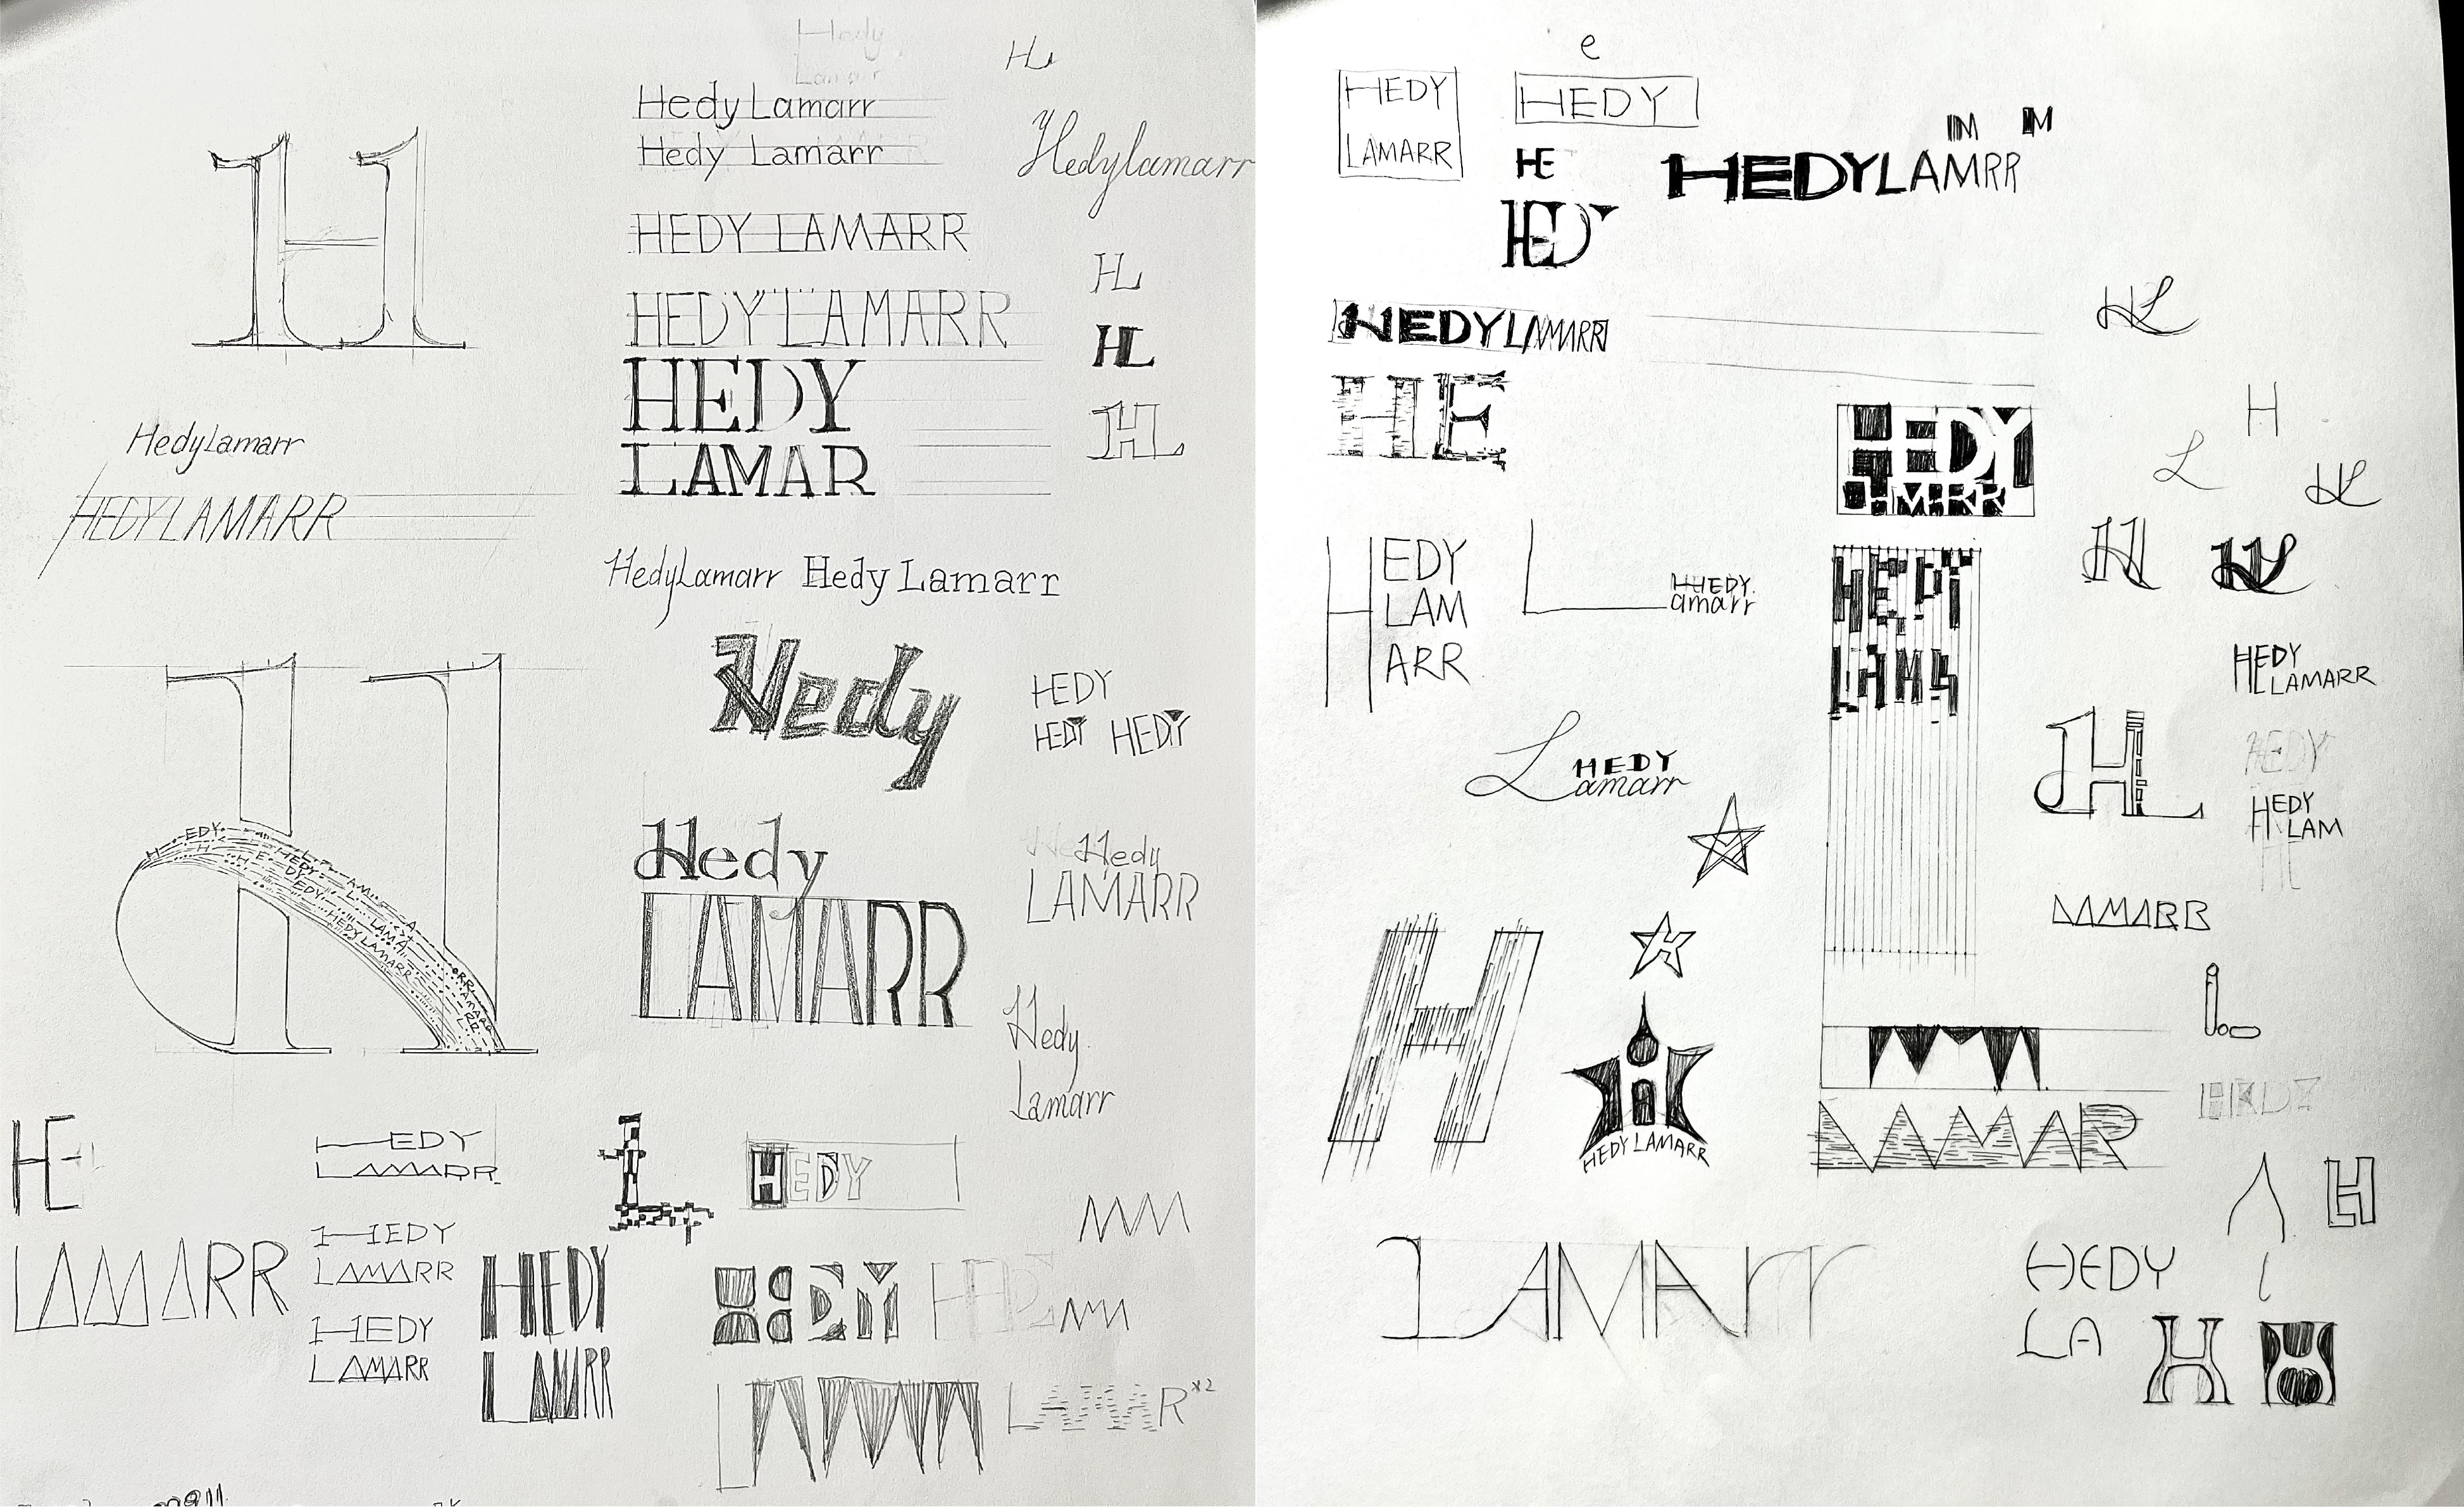 Hedy
Lamarr
HL
Hedy Lamarr
Hedy Lamarr
Hedylamarr
HEDY LAMARR
HL
HEDY LAMARR
HL
HEDY
LAMAR
HL
H
HedyLamarr
HEDYLAMARR
HedyLamarr Hedy Lamarr
Hedy
HEDY
HEDY HEDY
H
EDY
H
HEDY
HEDY LAMARR
Hedy
LAMARR
Hedy
LAMARR
Hedy
Lamarr
HE
LAMARR
HEDY
LAMARR
HEDY
LAMARR
HEDY
LAMARR
HEDY
LAMARR
L
HEDY
HEDY
LAMAR x2
e
HEDY
LAMARR
HEDY
HE
HED
M M
HEDYLAMRR
HEDYLAMARR
HE
HL
H
L
HL
HEDY
LAMRR
H
EDY
LAM
ARR
L
HHEDY.
amarr
HEDY
LAM
H
HL
HEDY
LAMARR
HEDY
L
HEDY
amarr
HL
HEDY
LAM
LAMARR
H
H
H
HEDY LAMARR
LAMAR
HEDY
H
LAMArr
HEDY
LA
l
H
H